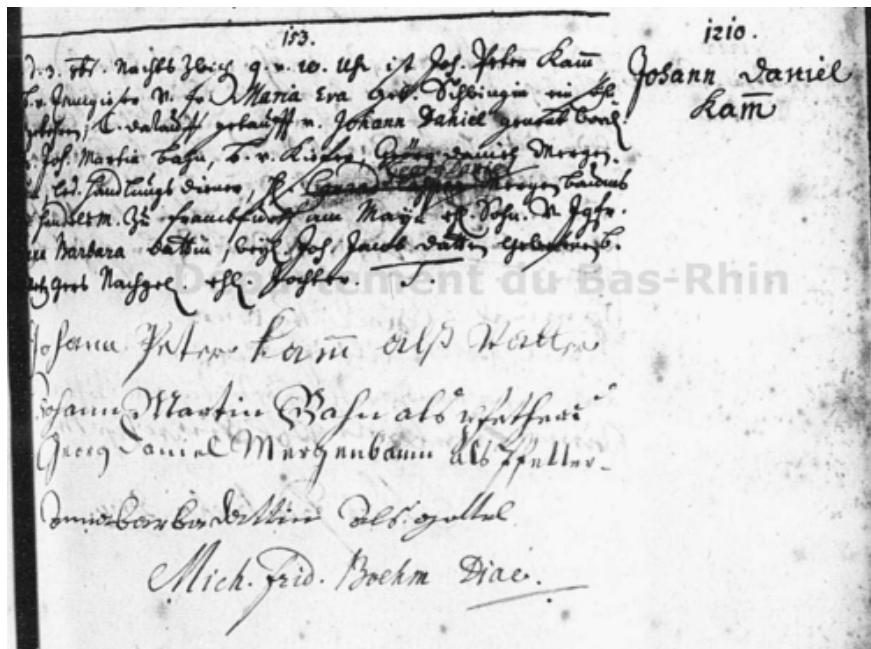 153.
1210.
Johann Daniel
Kam̄
d. 3. Nachts Zwisch 9 u. 10. Uhr ist Joh. Peter Kam̄
Maria Eva geb.
gebohren, darauff getaufft u. Johann Daniel genent word.
Joh. Martin Bahn, b. u. Kiefer, Georg Daniel Mergen.
led. Handlungs diener, Mergenbaums
zu Franckfurth am Mayn ehl. Sohn. u. Jgfr.
Barbara Dattin, Joh. Jacob Datten
Nachgel. ehl. Tochter.
Johann Peter Kam̄ alß Vatter
Johann Martin Bahn als
Georg Daniel Mergenbaum als Pfetter
anna barba dattin als gottel
Mich. Frid. Boehm Diac.
Département du Bas-Rhin